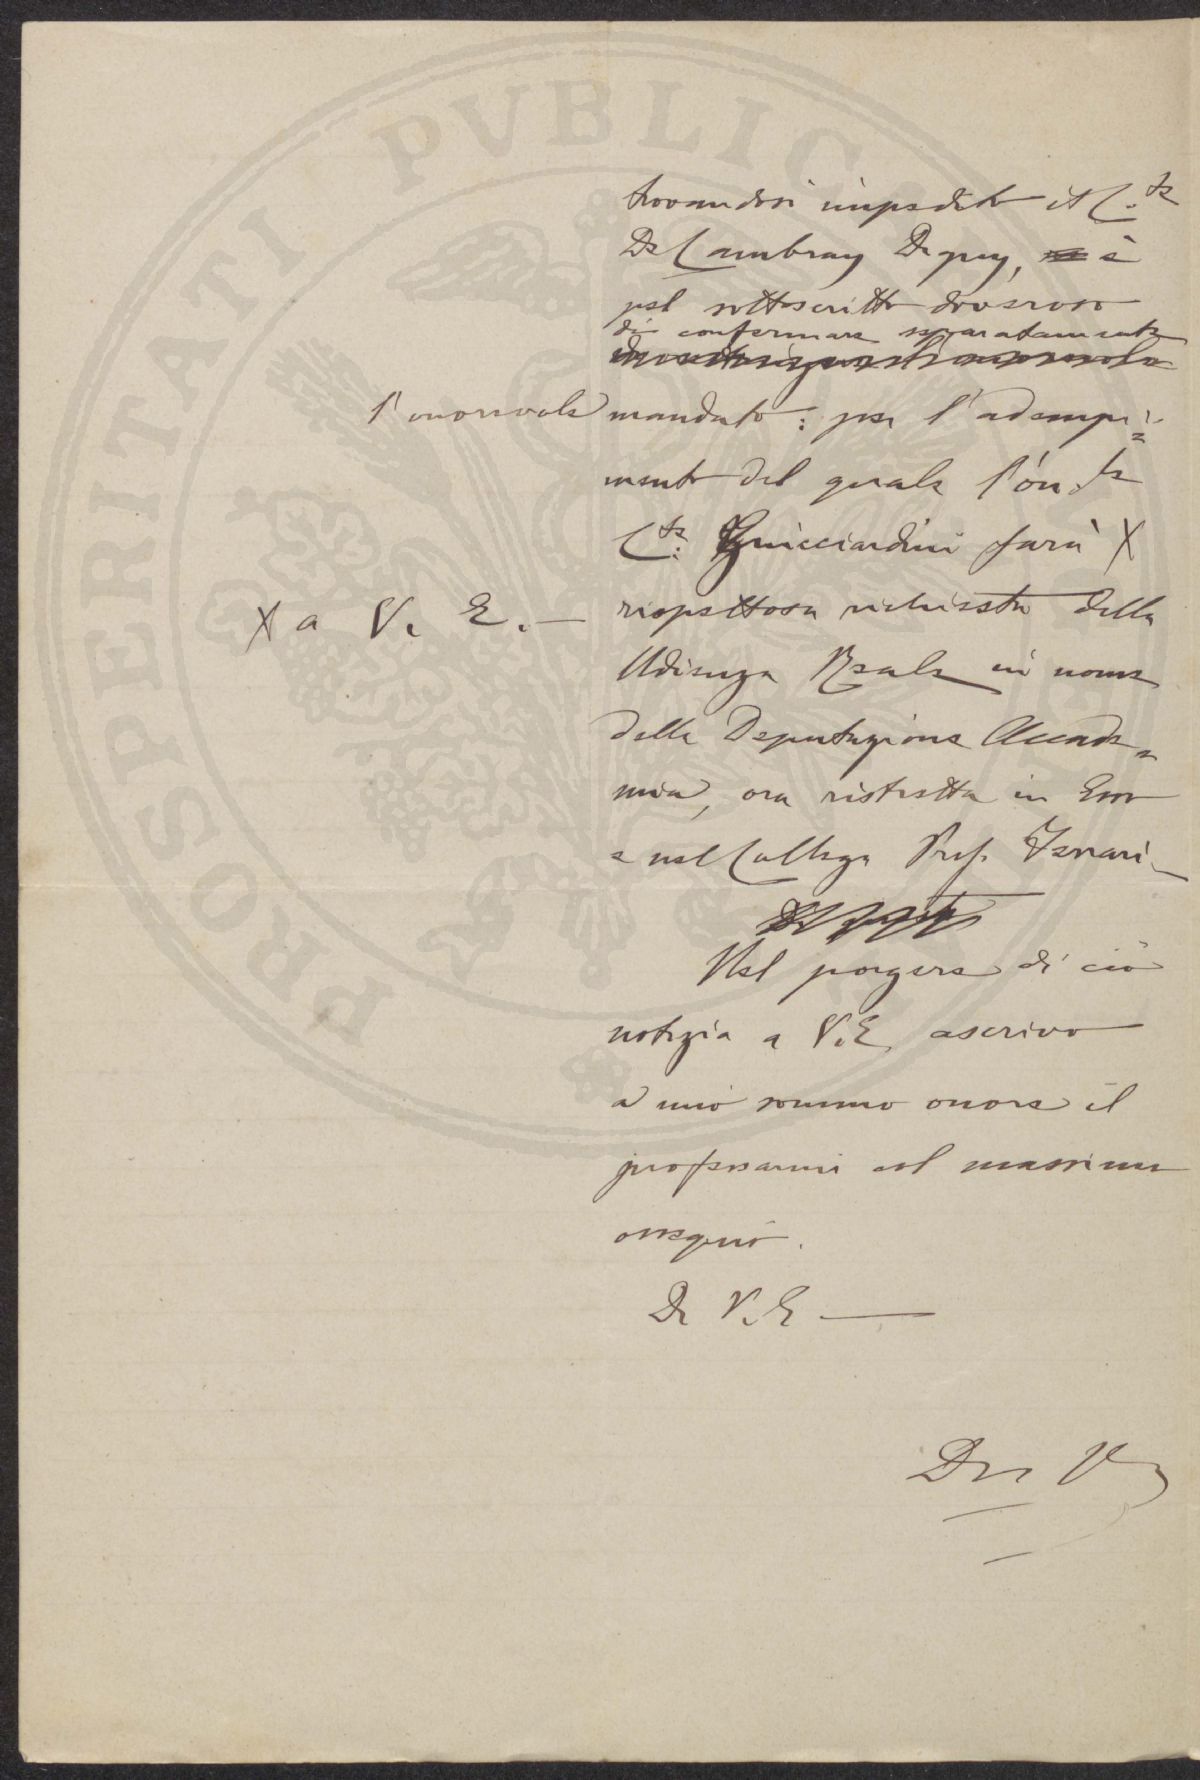 trovandosi impedito il C.te
De Cambray Digny, è
pel sottoscritto doveroso
di confermare separatamente
l'onorevole mandato: per l'adempi=
mento del quale l'on.le
C.te: Guicciardini farà X
X a V. E. —
rispettosa richiesta della
Udienza Reale in nome
della Deputazione Accade=
mica, ora ristretta in Esso
e nel Collega Prof. Ferrari
Nel porgere di ciò
notizia a V. E. ascrivo
a mio sommo onore il
professarmi col massimo
ossequio.
Di V. E. —